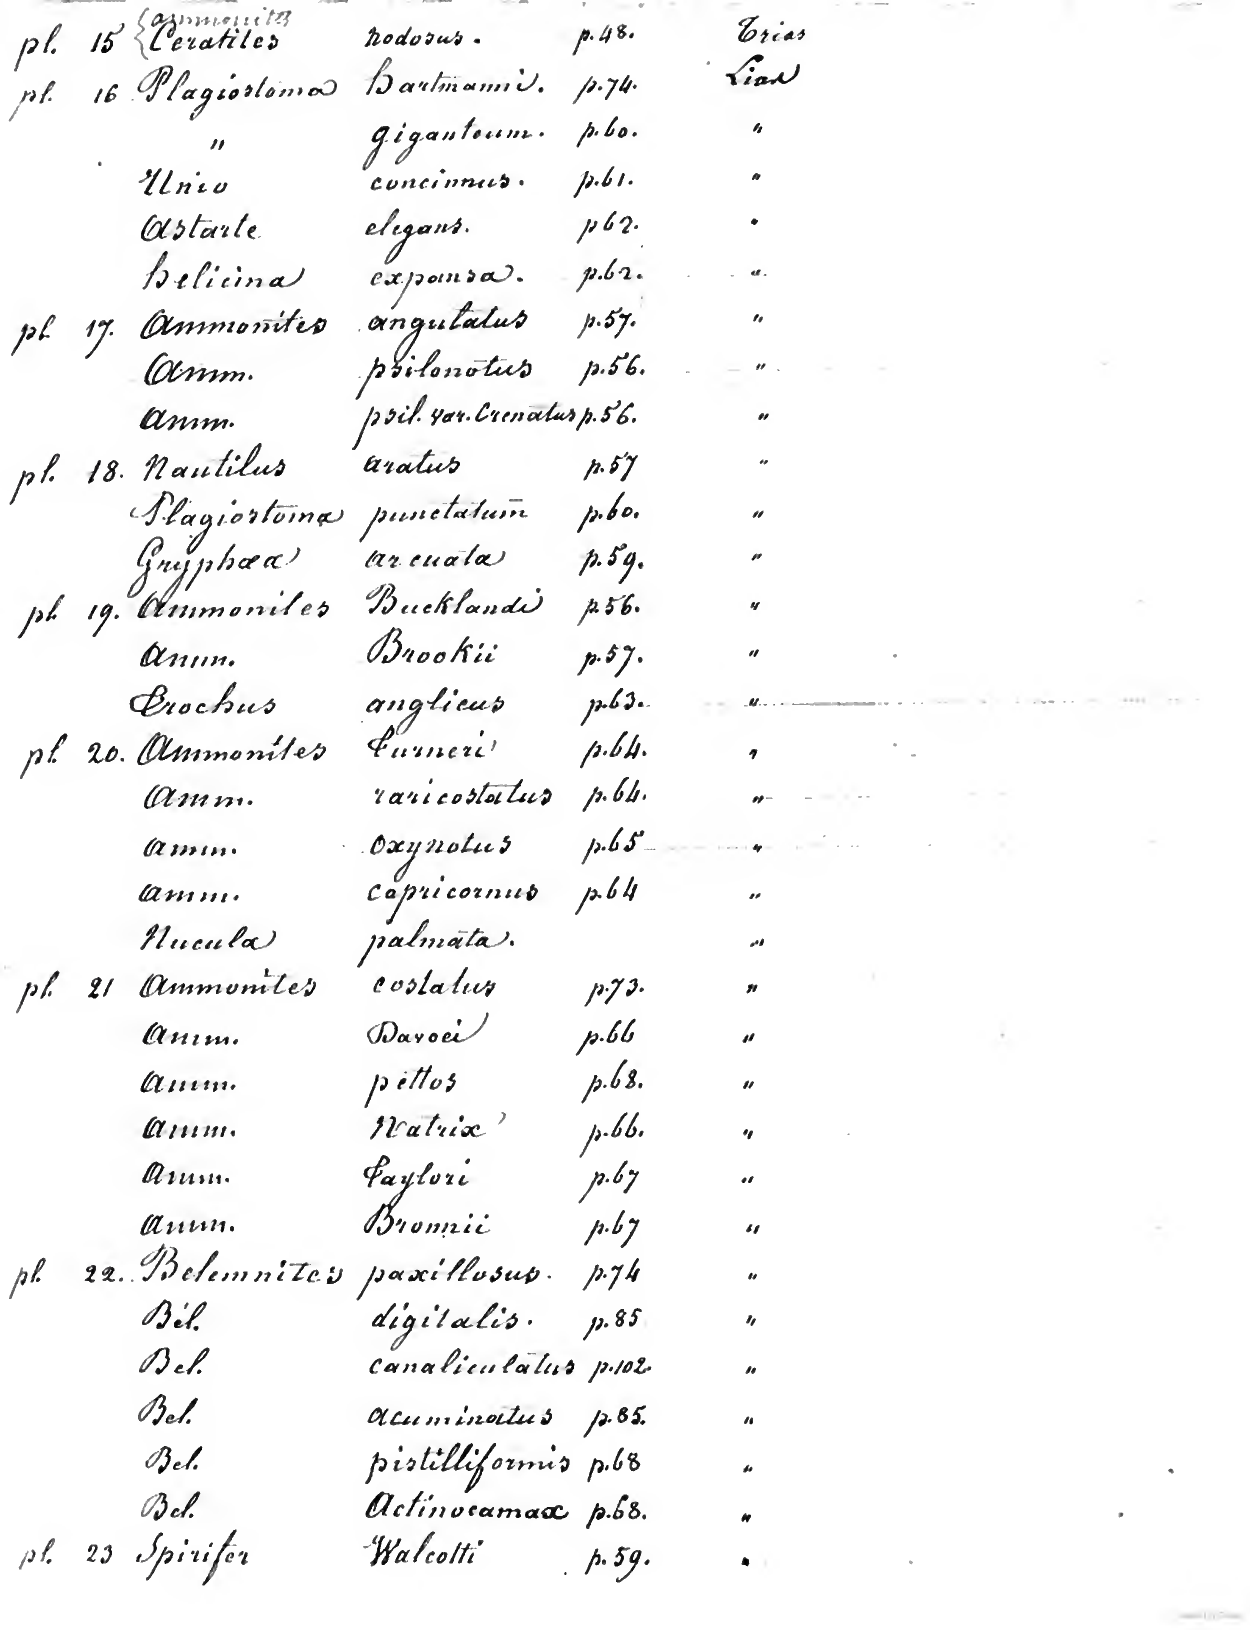 (ammonites
pl. 15 {Ceratites nodosus. p.48. Trias
pl. 16 Plagiostoma Hartmanni. p.74. Lias
" giganteum. p.60. "
Unio concinnus. p.61. "
Astarte elegans. p62. "
Helicina expansa. p.62. "
pl 17. Ammonites angulatus p.57. "
Amm. psilonotus p.56. "
Amm. psil. var. Crenatus p.56. "
pl. 18. Nautilus aratus p.57 "
Plagiostoma punctatum p.60. "
Gryphæa arcuata p.59. "
pl. 19. Ammonites Bucklandi p.56. "
Amm. Brookii p.57. "
Trochus anglicus p.63. "
pl. 20. Ammonites Turneri p.64. "
Amm. raricostatus p.64. "
Amm. oxynotus p.65 "
Amm. capricornus p.64 "
Nucula palmata. "
pl. 21 Ammonites costatus p.73. "
Amm. Davoei p.66 "
Amm. pettos p.68. "
Amm. Natrix p.66. "
Amm. Taylori p.67 "
Amm. Bronnii p.67 "
pl. 22. Belemnites paxillosus. p.74 "
Bel. digitalis. p.85 "
Bel. canaliculatus p.102. "
Bel. acuminatus p.85. "
Bel. pistilliformis p.68 "
Bel. Actinocamax p.68. "
pl. 23 Spirifer Walcotti p.59. "